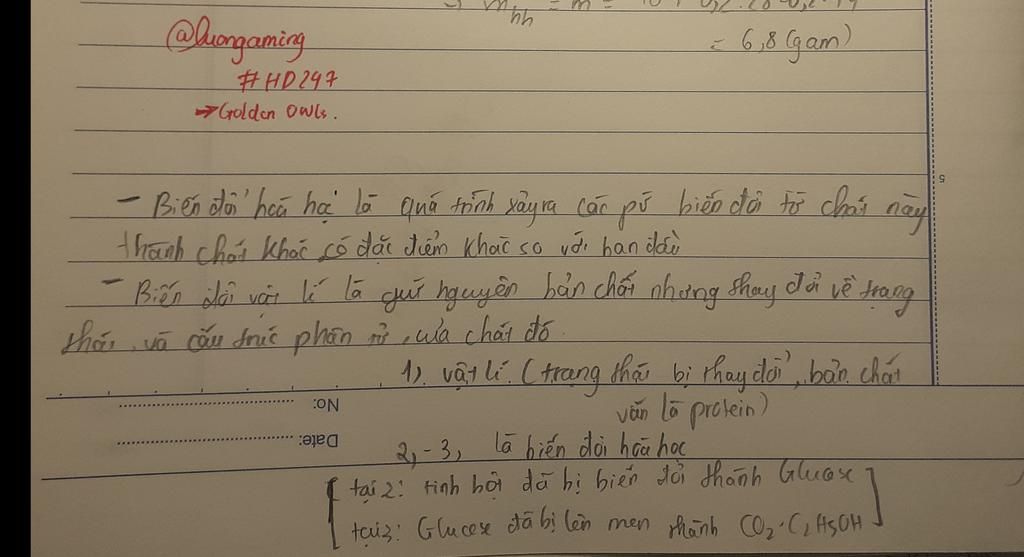 @luongaming
= 6,8 (gam)
#HD247
→ Golden Owls.
5
- Biến đổi hoá học là quá trình xảy ra các pứ biến đổi từ chất này
thành chất khác, có đặc điểm khác so với ban đầu
- Biến đổi vật lí là giữ nguyên bản chất nhưng thay đổi về trạng
thái, và cấu trúc phân tử, của chất đó.
1). vật lí. (trạng thái bị thay đổi, bản chất
vẫn là protein)
No:
Date:
2, - 3, là biến đổi hoá học
tại 2: tinh bột đã bị biến đổi thành Glucose
tại 3: Glucose đã bị lên men thành CO2. C2H5OH